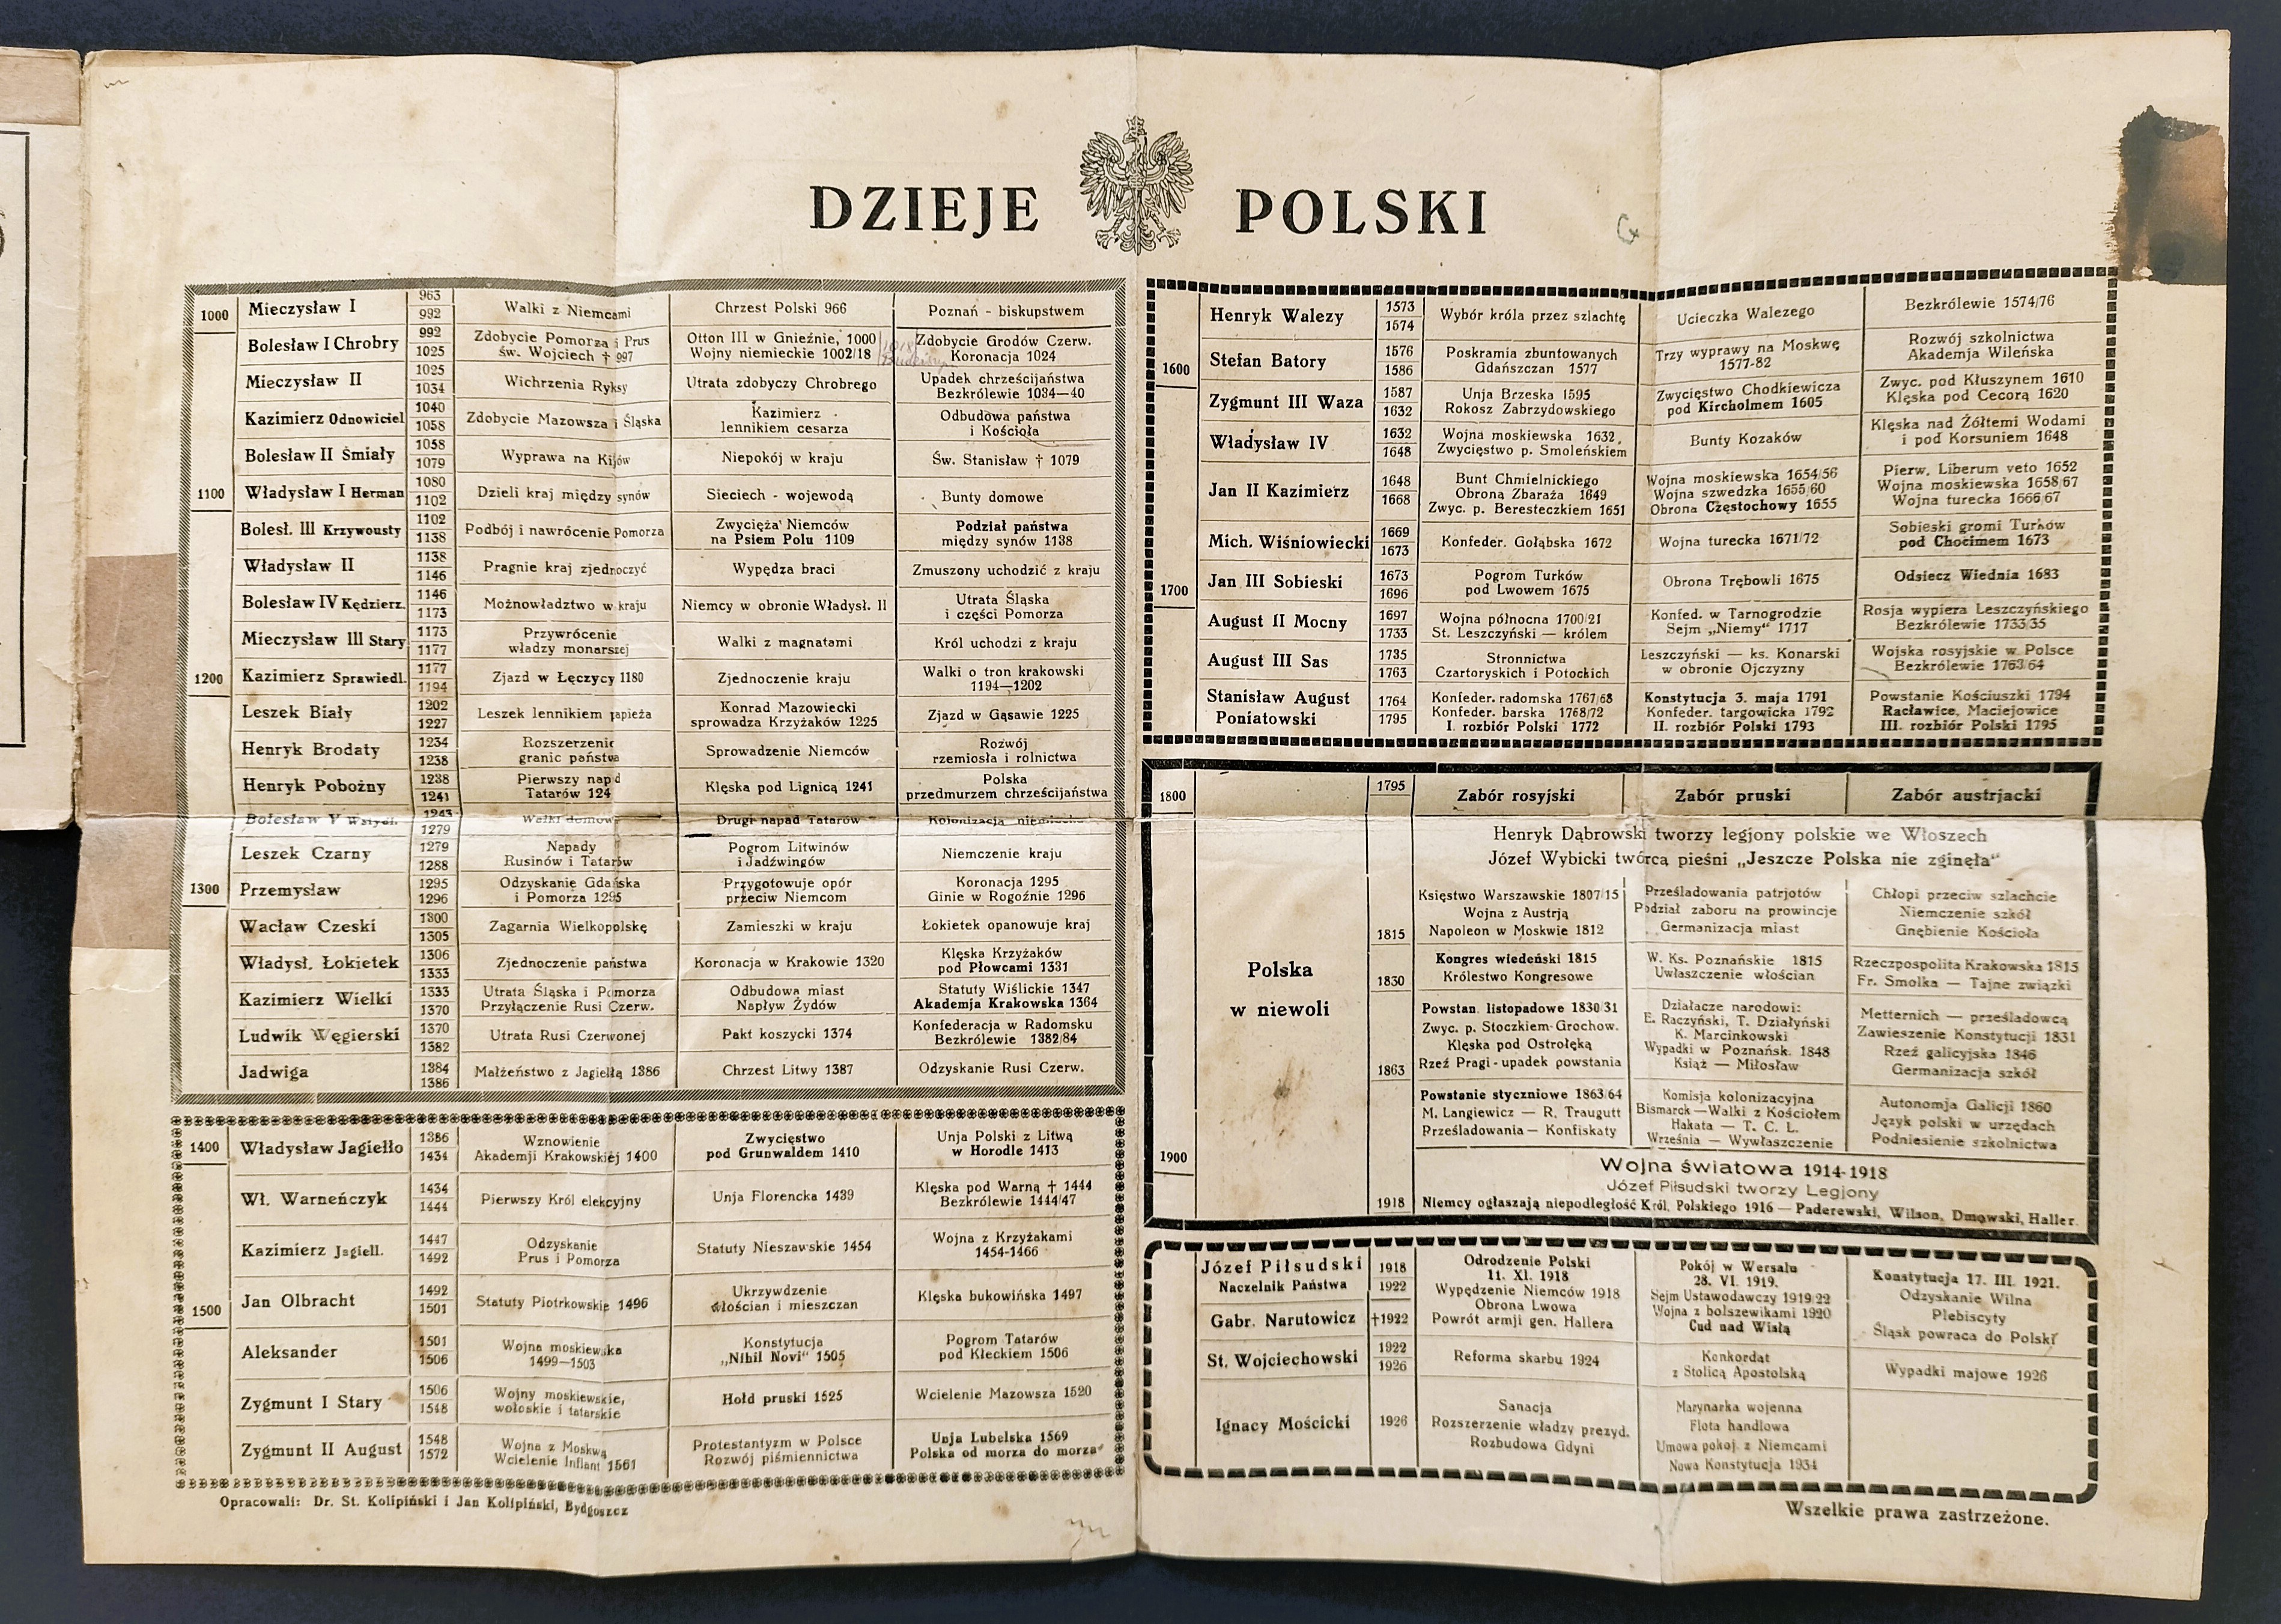 DZIEJE POLSKI
1000
Mieczysław I
963
992
Walki z Niemcami
Chrzest Polski 966
Poznań - biskupstwem
Bolesław I Chrobry
992
1025
Zdobycie Pomorza i Prus
św. Wojciech † 997
Otton III w Gnieźnie, 1000
Wojny niemieckie 1002/18
Zdobycie Grodów Czerw.
Koronacja 1024
Mieczysław II
1025
1034
Wichrzenia Ryksy
Utrata zdobyczy Chrobrego
Upadek chrześcijaństwa
Bezkrólewie 1034—40
Kazimierz Odnowiciel
1040
1058
Zdobycie Mazowsza i Śląska
Kazimierz
lennikiem cesarza
Odbudowa państwa
i Kościoła
Bolesław II Śmiały
1058
1079
Wyprawa na Kijów
Niepokój w kraju
Św. Stanisław † 1079
1100
Władysław I Herman
1080
1102
Dzieli kraj między synów
Sieciech - wojewodą
Bunty domowe
Bolesł. III Krzywousty
1102
1138
Podbój i nawrócenie Pomorza
Zwycięża Niemców
na Psiem Polu 1109
Podział państwa
między synów 1138
Władysław II
1138
1146
Pragnie kraj zjednoczyć
Wypędza braci
Zmuszony uchodzić z kraju
Bolesław IV Kędzierz.
1146
1173
Możnowładztwo w kraju
Niemcy w obronie Władysł. II
Utrata Śląska
i części Pomorza
Mieczysław III Stary
1173
1177
Przywrócenie
władzy monarszej
Walki z magnatami
Król uchodzi z kraju
1200
Kazimierz Sprawiedl.
1177
1194
Zjazd w Łęczycy 1180
Zjednoczenie kraju
Walki o tron krakowski
1194—1202
Leszek Biały
1202
1227
Leszek lennikiem papieża
Konrad Mazowiecki
sprowadza Krzyżaków 1225
Zjazd w Gąsawie 1225
Henryk Brodaty
1234
1238
Rozszerzenie
granic państwa
Sprowadzenie Niemców
Rozwój
rzemiosła i rolnictwa
Henryk Pobożny
1238
1241
Pierwszy napad
Tatarów 124
Klęska pod Lignicą 1241
Polska
przedmurzem chrześcijaństwa
Bolesław V Wstydl.
1243
1279
Walki domowe
Drugi napad Tatarów
Kolonizacja niemiecka
Leszek Czarny
1279
1288
Napady
Rusinów i Tatarów
Pogrom Litwinów
i Jadźwingów
Niemczenie kraju
1300
Przemysław
1295
1296
Odzyskanie Gdańska
i Pomorza 1295
Przygotowuje opór
przeciw Niemcom
Koronacja 1295
Ginie w Rogoźnie 1296
Wacław Czeski
1300
1305
Zagarnia Wielkopolskę
Zamieszki w kraju
Łokietek opanowuje kraj
Władysł. Łokietek
1306
1333
Zjednoczenie państwa
Koronacja w Krakowie 1320
Klęska Krzyżaków
pod Płowcami 1331
Kazimierz Wielki
1333
1370
Utrata Śląska i Pomorza
Przyłączenie Rusi Czerw.
Odbudowa miast
Napływ Żydów
Statuty Wiślickie 1347
Akademja Krakowska 1364
Ludwik Węgierski
1370
1382
Utrata Rusi Czerwonej
Pakt koszycki 1374
Konfederacja w Radomsku
Bezkrólewie 1382/84
Jadwiga
1384
1386
Małżeństwo z Jagiełłą 1386
Chrzest Litwy 1387
Odzyskanie Rusi Czerw.
1400
Władysław Jagiełło
1386
1434
Wznowienie
Akademji Krakowskiej 1400
Zwycięstwo
pod Grunwaldem 1410
Unja Polski z Litwą
w Horodle 1413
Wł. Warneńczyk
1434
1444
Pierwszy Król elekcyjny
Unja Florencka 1439
Klęska pod Warną † 1444
Bezkrólewie 1444/47
Kazimierz Jagiell.
1447
1492
Odzyskanie
Prus i Pomorza
Statuty Nieszawskie 1454
Wojna z Krzyżakami
1454-1466
1500
Jan Olbracht
1492
1501
Statuty Piotrkowskie 1496
Ukrzywdzenie
włościan i mieszczan
Klęska bukowińska 1497
Aleksander
1501
1506
Wojna moskiewska
1499—1503
Konstytucja
„Nihil Novi“ 1505
Pogrom Tatarów
pod Kłeckiem 1506
Zygmunt I Stary
1506
1548
Wojny moskiewskie,
wołoskie i tatarskie
Hołd pruski 1525
Wcielenie Mazowsza 1520
Zygmunt II August
1548
1572
Wojna z Moskwą
Wcielenie Inflant 1561
Protestantyzm w Polsce
Rozwój piśmiennictwa
Unja Lubelska 1569
Polska od morza do morza
Opracowali: Dr. St. Kolipiński i Jan Kolipiński, Bydgoszcz
Henryk Walezy
1573
1574
Wybór króla przez szlachtę
Ucieczka Walezego
Bezkrólewie 1574/76
1600
Stefan Batory
1576
1586
Poskramia zbuntowanych
Gdańszczan 1577
Trzy wyprawy na Moskwę
1577-82
Rozwój szkolnictwa
Akademja Wileńska
Zygmunt III Waza
1587
1632
Unja Brzeska 1595
Rokosz Zabrzydowskiego
Zwycięstwo Chodkiewicza
pod Kircholmem 1605
Zwyc. pod Kłuszynem 1610
Klęska pod Cecorą 1620
Władysław IV
1632
1648
Wojna moskiewska 1632,
Zwycięstwo p. Smoleńskiem
Bunty Kozaków
Klęska nad Żółtemi Wodami
i pod Korsuniem 1648
Jan II Kazimierz
1648
1668
Bunt Chmielnickiego
Obrona Zbaraża 1649
Zwyc. p. Beresteczkiem 1651
Wojna moskiewska 1654/56
Wojna szwedzka 1655/60
Obrona Częstochowy 1655
Pierw. Liberum veto 1652
Wojna moskiewska 1658/67
Wojna turecka 1666/67
Mich. Wiśniowiecki
1669
1673
Konfeder. Gołąbska 1672
Wojna turecka 1671/72
Sobieski gromi Turków
pod Chocimem 1673
1700
Jan III Sobieski
1673
1696
Pogrom Turków
pod Lwowem 1675
Obrona Trębowli 1675
Odsiecz Wiednia 1683
August II Mocny
1697
1733
Wojna północna 1700/21
St. Leszczyński — królem
Konfed. w Tarnogrodzie
Sejm „Niemy“ 1717
Rosja wypiera Leszczyńskiego
Bezkrólewie 1733/35
August III Sas
1735
1763
Stronnictwa
Czartoryskich i Potockich
Leszczyński — ks. Konarski
w obronie Ojczyzny
Wojska rosyjskie w Polsce
Bezkrólewie 1763/64
Stanisław August
Poniatowski
1764
1795
Konfeder. radomska 1767/68
Konfeder. barska 1768/72
I. rozbiór Polski 1772
Konstytucja 3. maja 1791
Konfeder. targowicka 1792
II. rozbiór Polski 1793
Powstanie Kościuszki 1794
Racławice, Maciejowice
III. rozbiór Polski 1795
1800
1795
Zabór rosyjski
Zabór pruski
Zabór austrjacki
Henryk Dąbrowski tworzy legjony polskie we Włoszech
Józef Wybicki twórcą pieśni „Jeszcze Polska nie zginęła“
Polska
w niewoli
1815
Księstwo Warszawskie 1807/15
Wojna z Austrją
Napoleon w Moskwie 1812
Prześladowania patrjotów
Podział zaboru na prowincje
Germanizacja miast
Chłopi przeciw szlachcie
Niemczenie szkół
Gnębienie Kościoła
1830
Kongres wiedeński 1815
Królestwo Kongresowe
W. Ks. Poznańskie 1815
Uwłaszczenie włościan
Rzeczpospolita Krakowska 1815
Fr. Smolka — Tajne związki
1863
Powstan. listopadowe 1830/31
Zwyc. p. Stoczkiem-Grochow.
Klęska pod Ostrołęką
Rzeź Pragi - upadek powstania
Działacze narodowi:
E. Raczyński, T. Działyński
K. Marcinkowski
Wypadki w Poznańsk. 1848
Książ — Miłosław
Metternich — prześladowcą
Zawieszenie Konstytucji 1831
Rzeź galicyjska 1846
Germanizacja szkół
Powstanie styczniowe 1863/64
M. Langiewicz — R. Traugutt
Prześladowania — Konfiskaty
Komisja kolonizacyjna
Bismarck — Walki z Kościołem
Hakata — T. C. L.
Września — Wywłaszczenie
Autonomja Galicji 1860
Język polski w urzędach
Podniesienie szkolnictwa
1900
Wojna światowa 1914-1918
Józef Piłsudski tworzy Legjony
1918
Niemcy ogłaszają niepodległość Król. Polskiego 1916 — Paderewski, Wilson, Dmowski, Haller.
Józef Piłsudski
Naczelnik Państwa
1918
1922
Odrodzenie Polski
11. XI. 1918
Wypędzenie Niemców 1918
Obrona Lwowa
Powrót armji gen. Hallera
Pokój w Wersalu
28. VI. 1919.
Sejm Ustawodawczy 1919/22
Wojna z bolszewikami 1920
Cud nad Wisłą
Konstytucja 17. III. 1921.
Odzyskanie Wilna
Plebiscyty
Śląsk powraca do Polski
Gabr. Narutowicz
†1922
St. Wojciechowski
1922
1926
Reforma skarbu 1924
Konkordat
z Stolicą Apostolską
Wypadki majowe 1926
Ignacy Mościcki
1926
Sanacja
Rozszerzenie władzy prezyd.
Rozbudowa Gdyni
Marynarka wojenna
Flota handlowa
Umowa pokoj. z Niemcami
Nowa Konstytucja 1934
Wszelkie prawa zastrzeżone.